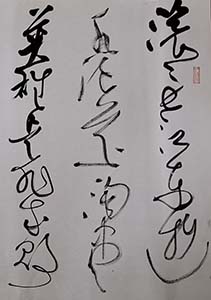 滾滾長江東逝
水浪花淘盡
英雄是非成敗